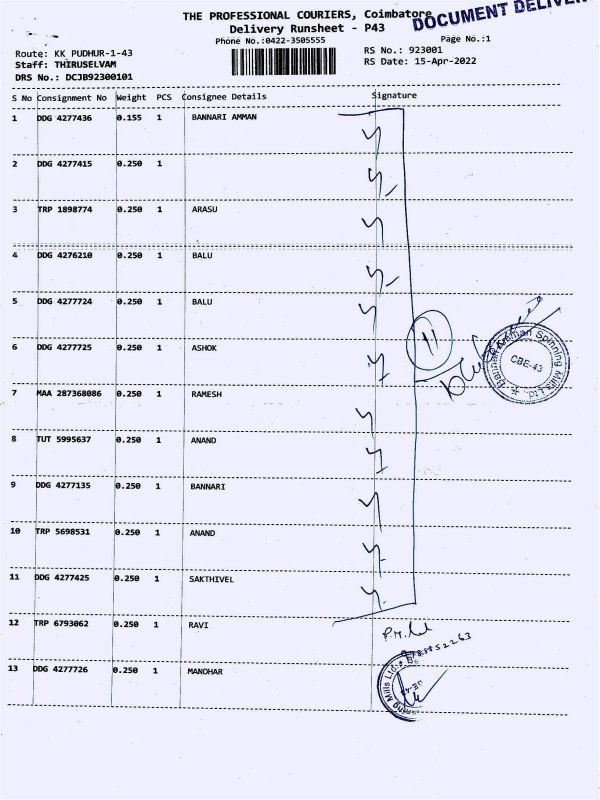 THE PROFESSIONAL COURIERS, Coimbatore
DOCUMENT DELIVER
Delivery Runsheet - P43
Phone No.:0422-3505555
Page No.:1
Route: KK PUDHUR-1-43
RS No.: 923001
Staff: THIRUSELVAM
RS Date: 15-Apr-2022
DRS No.: DCJB92300101
S No Consignment No Weight PCS Consignee Details Signature
1 DDG 4277436 0.155 1 BANNARI AMMAN
2 DDG 4277415 0.250 1
3 TRP 1898774 0.250 1 ARASU
4 DDG 4276210 0.250 1 BALU
5 DDG 4277724 0.250 1 BALU
11
6 DDG 4277725 0.250 1 ASHOK
Bannari Amman Spinning Mills Ltd.
CBE-43
7 MAA 287368086 0.250 1 RAMESH
8 TUT 5995637 0.250 1 ANAND
9 DDG 4277135 0.250 1 BANNARI
10 TRP 5698531 0.250 1 ANAND
11 DDG 4277425 0.250 1 SAKTHIVEL
12 TRP 6793062 0.250 1 RAVI
13 DDG 4277726 0.250 1 MANOHAR
Mills Ltd